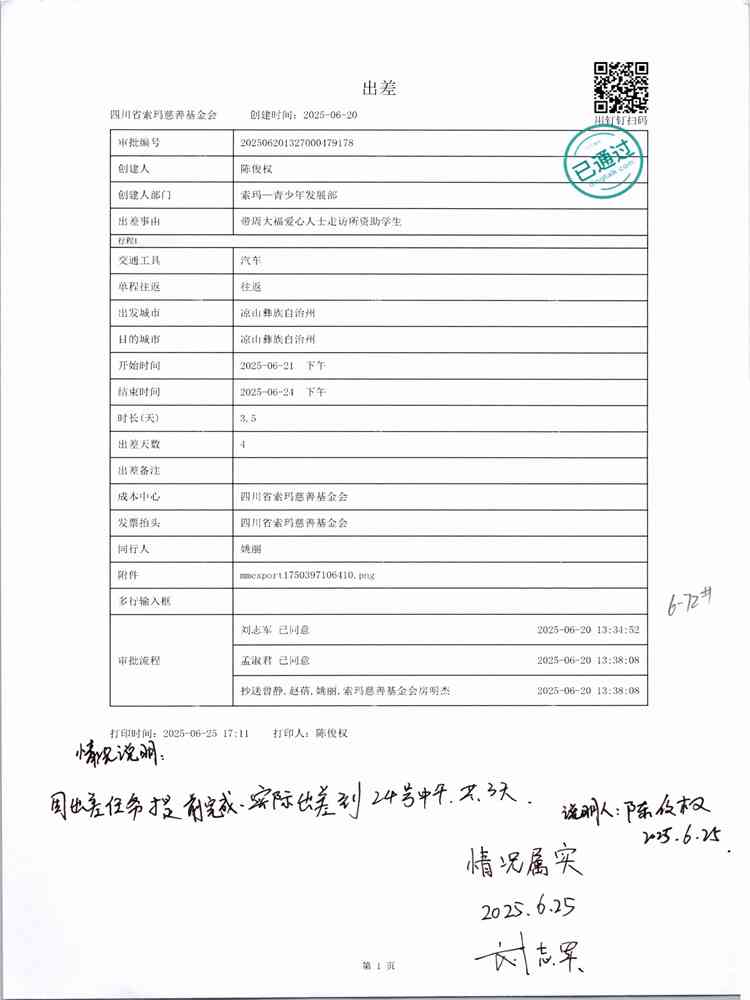 出差
用钉钉扫码
四川省索玛慈善基金会 创建时间：2025-06-20
已通过
dingtalk.com
审批编号 202506201327000479178
创建人 陈俊权
创建人部门 索玛—青少年发展部
出差事由 带周大福爱心人士走访所资助学生
行程1
交通工具 汽车
单程往返 往返
出发城市 凉山彝族自治州
目的城市 凉山彝族自治州
开始时间 2025-06-21 下午
结束时间 2025-06-24 下午
时长(天) 3.5
出差天数 4
出差备注
成本中心 四川省索玛慈善基金会
发票抬头 四川省索玛慈善基金会
同行人 姚丽
附件 mmexport1750397106410.png
多行输入框
6-72#
审批流程
刘志军 已同意 2025-06-20 13:34:52
孟淑君 已同意 2025-06-20 13:38:08
抄送曾静,赵蓓,姚丽,索玛慈善基金会房明杰 2025-06-20 13:38:08
打印时间：2025-06-25 17:11 打印人：陈俊权
情况说明：
因出差任务提前完成、实际出差到24号中午.共3天.
说明人：陈俊权
2025.6.25.
情况属实
2025.6.25
刘志军
第 1 页